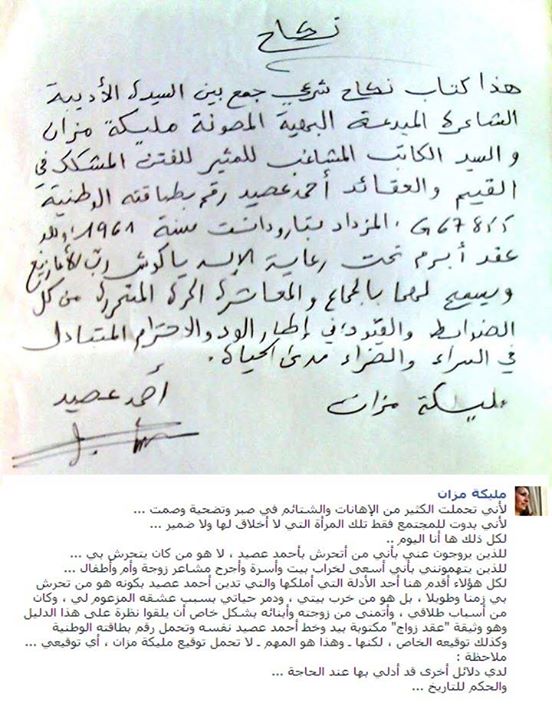 نكاح
هذا كتاب نكاح شرعي جمع بين السيدة الأديبة
الشاعرة المبدعة البهية المصونة مليكة مزان
والسيد الكاتب المشاغب المثير للفتن المشكك في
القيم والعقائد أحمد عصيد رقم بطاقته الوطنية
المزداد بتارودانت سنة 1961، وهو
عقد أبرم تحت رعاية الإله ياكوش رب الأمازيغ
ويسمح لهما بالجماع والمعاشرة الحرة المتحررة من كل
الضوابط والقيود، في إطار الود والاحترام المتبادل
في السراء والضراء مدى الحياة.
مليكة مزان
أحمد عصيد
مليكة مزان
لأني تحملت الكثير من الإهانات والشتائم في صبر وتضحية وصمت ...
لأني بدوت للمجتمع فقط تلك المرأة التي لا أخلاق لها ولا ضمير ...
لكل ذلك ها أنا اليوم ..
للذين يروجون عني بأني من أتحرش بأحمد عصيد ، لا هو من كان يتحرش بي ...
للذين يتهمونني بأني أسعى لخراب بيت وأسرة وأجرح مشاعر زوجة وأم وأطفال ...
لكل هؤلاء أقدم هنا أحد الأدلة التي أملكها والتي تدين أحمد عصيد بكونه هو من تحرش
بي زمنا وطويلا ، بل هو من خرب بيتي ، ودمر حياتي بسبب عشقه المزعوم لي ، وكان
من أسباب طلاقي ، وأتمنى من زوجته وأبنائه بشكل خاص أن يلقوا نظرة على هذا الدليل
وهو وثيقة "عقد زواج" مكتوبة بيد وخط أحمد عصيد نفسه وتحمل رقم بطاقته الوطنية
وكذلك توقيعه الخاص ، لكنها ـ وهذا هو المهم ـ لا تحمل توقيع مليكة مزان ، أي توقيعي ...
ملاحظة :
لدي دلائل أخرى قد أدلي بها عند الحاجة ...
والحكم للتاريخ ...